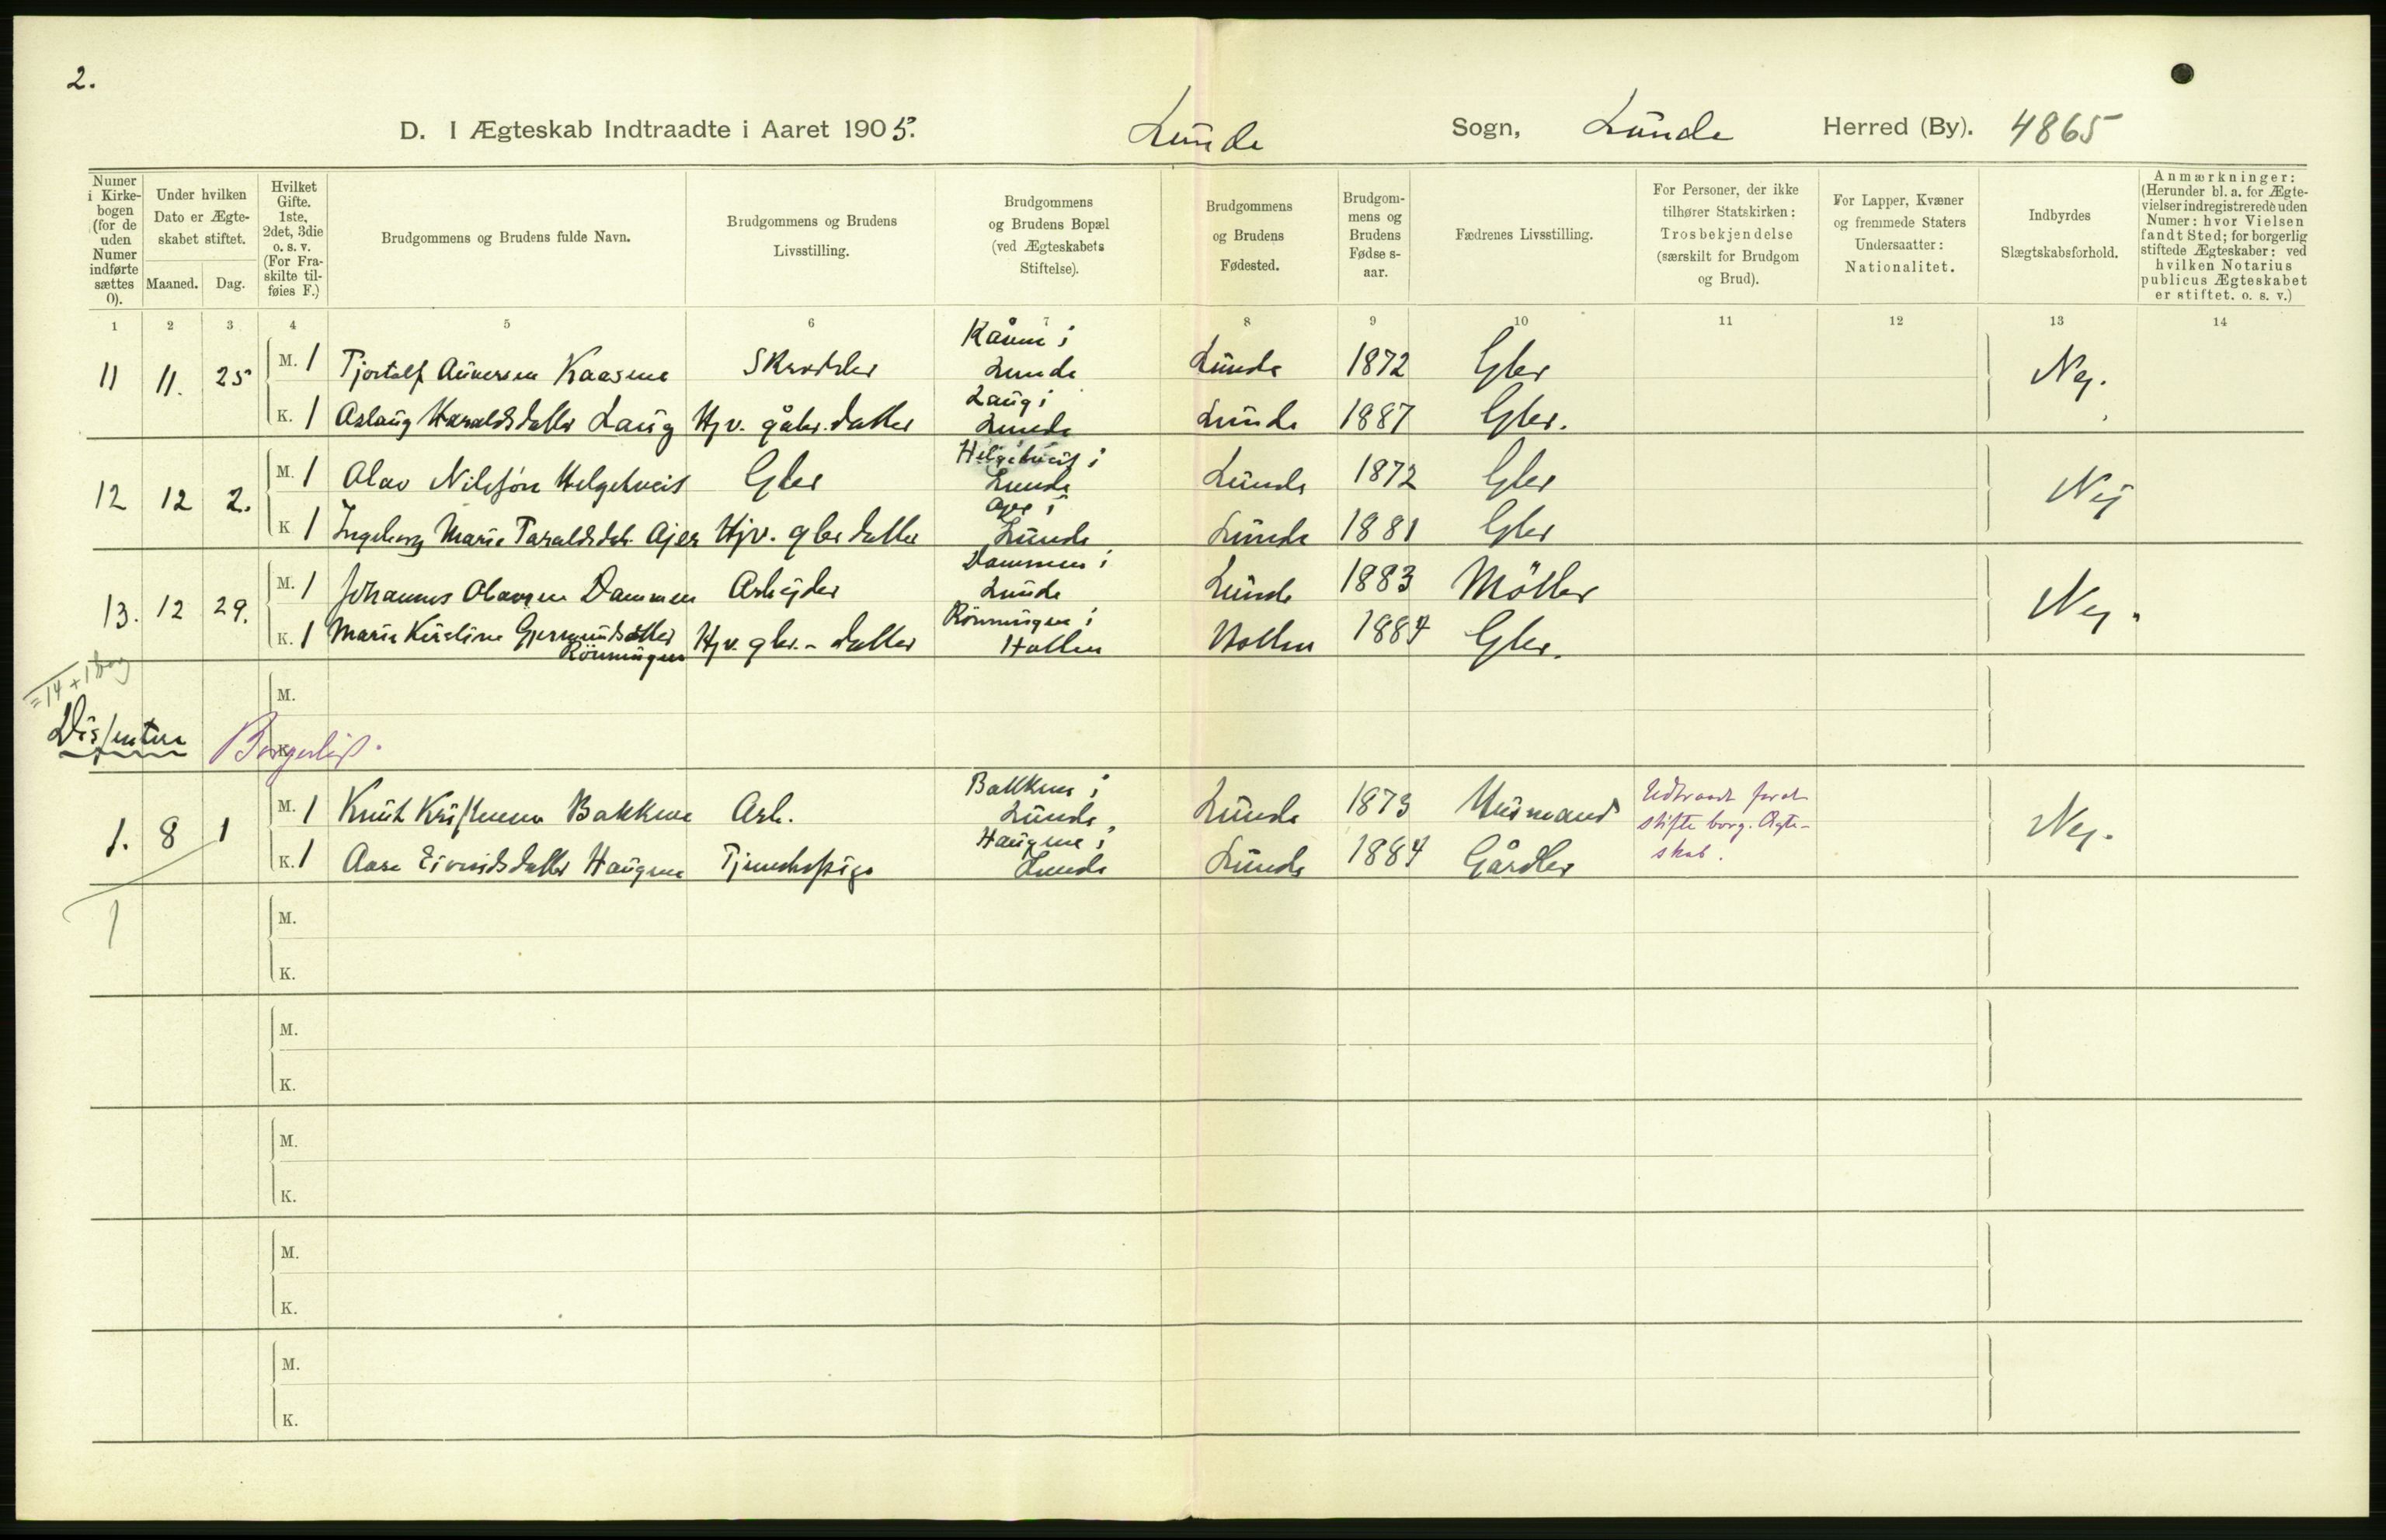 2.
D. I Ægteskab Indtraadte i Aaret 1905. Lunde Sogn, Lunde Herred (By). 4865
Numer i Kirkebogen (for de uden Numer indførte sættes 0).
Under hvilken Dato er Ægteskabet stiftet.
Maaned. Dag.
Hvilket Gifte. 1ste, 2det, 3die o. s. v. (For Fraskilte tilføies F.)
Brudgommens og Brudens fulde Navn.
Brudgommens og Brudens Livsstilling.
Brudgommens og Brudens Bopæl (ved Ægteskabets Stiftelse).
Brudgommens og Brudens Fødested.
Brudgommens og Brudens Fødselsaar.
Fædrenes Livsstilling.
For Personer, der ikke tilhører Statskirken: Trosbekjendelse (særskilt for Brudgom og Brud).
For Lapper, Kvæner og fremmede Staters Undersaatter: Nationalitet.
Indbyrdes Slægtskabsforhold.
Anmærkninger: (Herunder bl. a. for Ægtevielser indregistrerede uden Numer: hvor Vielsen fandt Sted; for borgerlig stiftede Ægteskaber: ved hvilken Notarius publicus Ægteskabet er stiftet. o. s. v.)
1 2 3 4 5 6 7 8 9 10 11 12 13 14
11 11. 25 M. 1 Kaasene Lunde Lunde 1872 Gbr Nej.
K. 1 Aslaug Haraldsdatter Laug Hjv. gåbr. datter Laug i Lunde Lunde 1887 Gbr.
12 12 2. M. 1 Olav Nilssøn Helgetveit Gbr Helgetveit i Lunde Lunde 1872 Gbr Nej
K 1 Ingeborg Marie Taraldsdtr. Ajer Hjv. gbr datter Lunde Lunde 1881 Gbr
13. 12 29. M. 1 Johannes Olavsen Dammen Arbejder Dammen i Lunde Lunde 1883 Möller Nej.
K. 1 Marie Kirstine Gjermundsdatter Rönningen Hjv. gbr.- datter Rönningen i Hollen Hollen 1884 Gbr.
= 14 + 1 borg
M.
Dissentere Borgerligt.
K.
1. 8 1 M. 1 Knut Kristensen Bakkene Arb. Bakken i Lunde Lunde 1873 Husmand Udtraadt for at stifte borg. Ægteskab. Nej.
K. 1 Aase Eivindsdatter Haugene Tjenestepige Haugene i Lunde Lunde 1884 Gårdbr
1
M.
K.
M.
K.
M.
K.
M.
K.
M.
K.